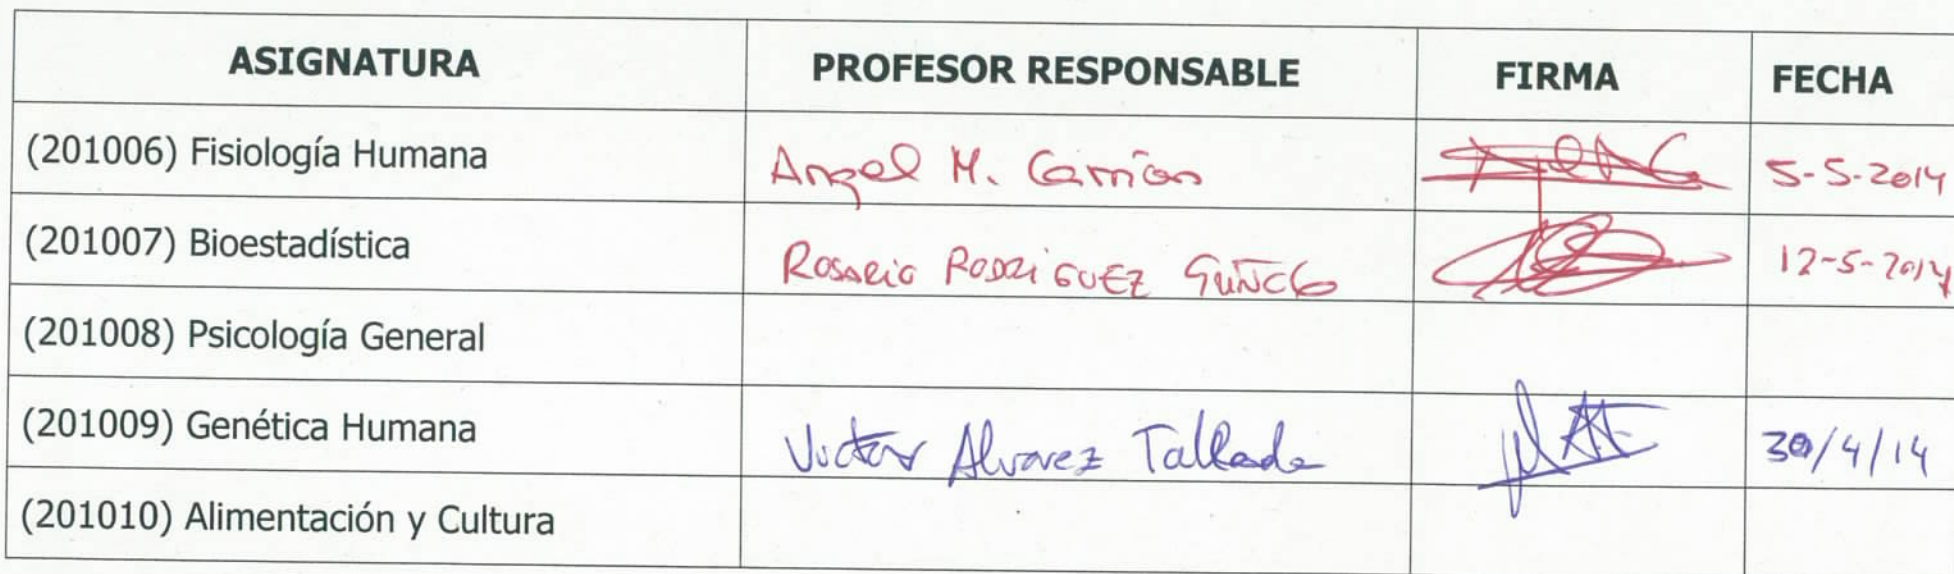 ASIGNATURA PROFESOR RESPONSABLE FIRMA FECHA
(201006) Fisiología Humana Angel M. Carrión 5-5-2014
(201007) Bioestadística ROSARIO RODRIGUEZ 12-5-2014
(201008) Psicología General
(201009) Genética Humana Victor Alvarez Tallada 30/4/14
(201010) Alimentación y Cultura